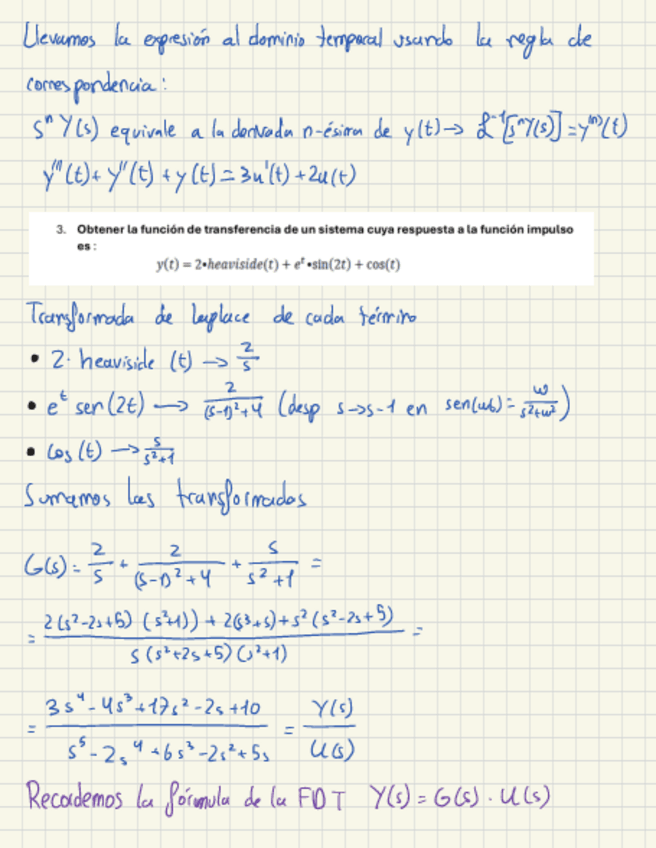 Llevamos la expresión al dominio temporal usando la regla de
correspondencia:
sⁿ Y(s) equivale a la derivada n-ésima de y(t) → ℒ⁻¹[sⁿY(s)] = y⁽ⁿ⁾(t)
y''(t) + y'(t) + y(t) = 3u'(t) + 2u(t)
3. Obtener la función de transferencia de un sistema cuya respuesta a la función impulso
es :
y(t) = 2•heaviside(t) + eᵗ •sin(2t) + cos(t)
Transformada de laplace de cada término
• 2· heaviside (t) → 2/s
• eᵗ sen(2t) → 2/((s-1)²+4) (desp s→s-1 en sen(ωt) = ω/(s²+ω²))
• cos(t) → s/(s²+1)
Sumamos las transformadas
G(s) = 2/s + 2/((s-1)²+4) + s/(s²+1) =
= (2(s²-2s+5) (s²+1)) + 2(s³+s) + s²(s²-2s+5))/(s(s²+2s+5)(s²+1)) =
= (3s⁴ - 4s³ + 17s² - 2s + 10)/(s⁵ - 2s⁴ + 6s³ - 2s² + 5s) = Y(s)/U(s)
Recordemos la fórmula de la FDT Y(s) = G(s) · U(s)